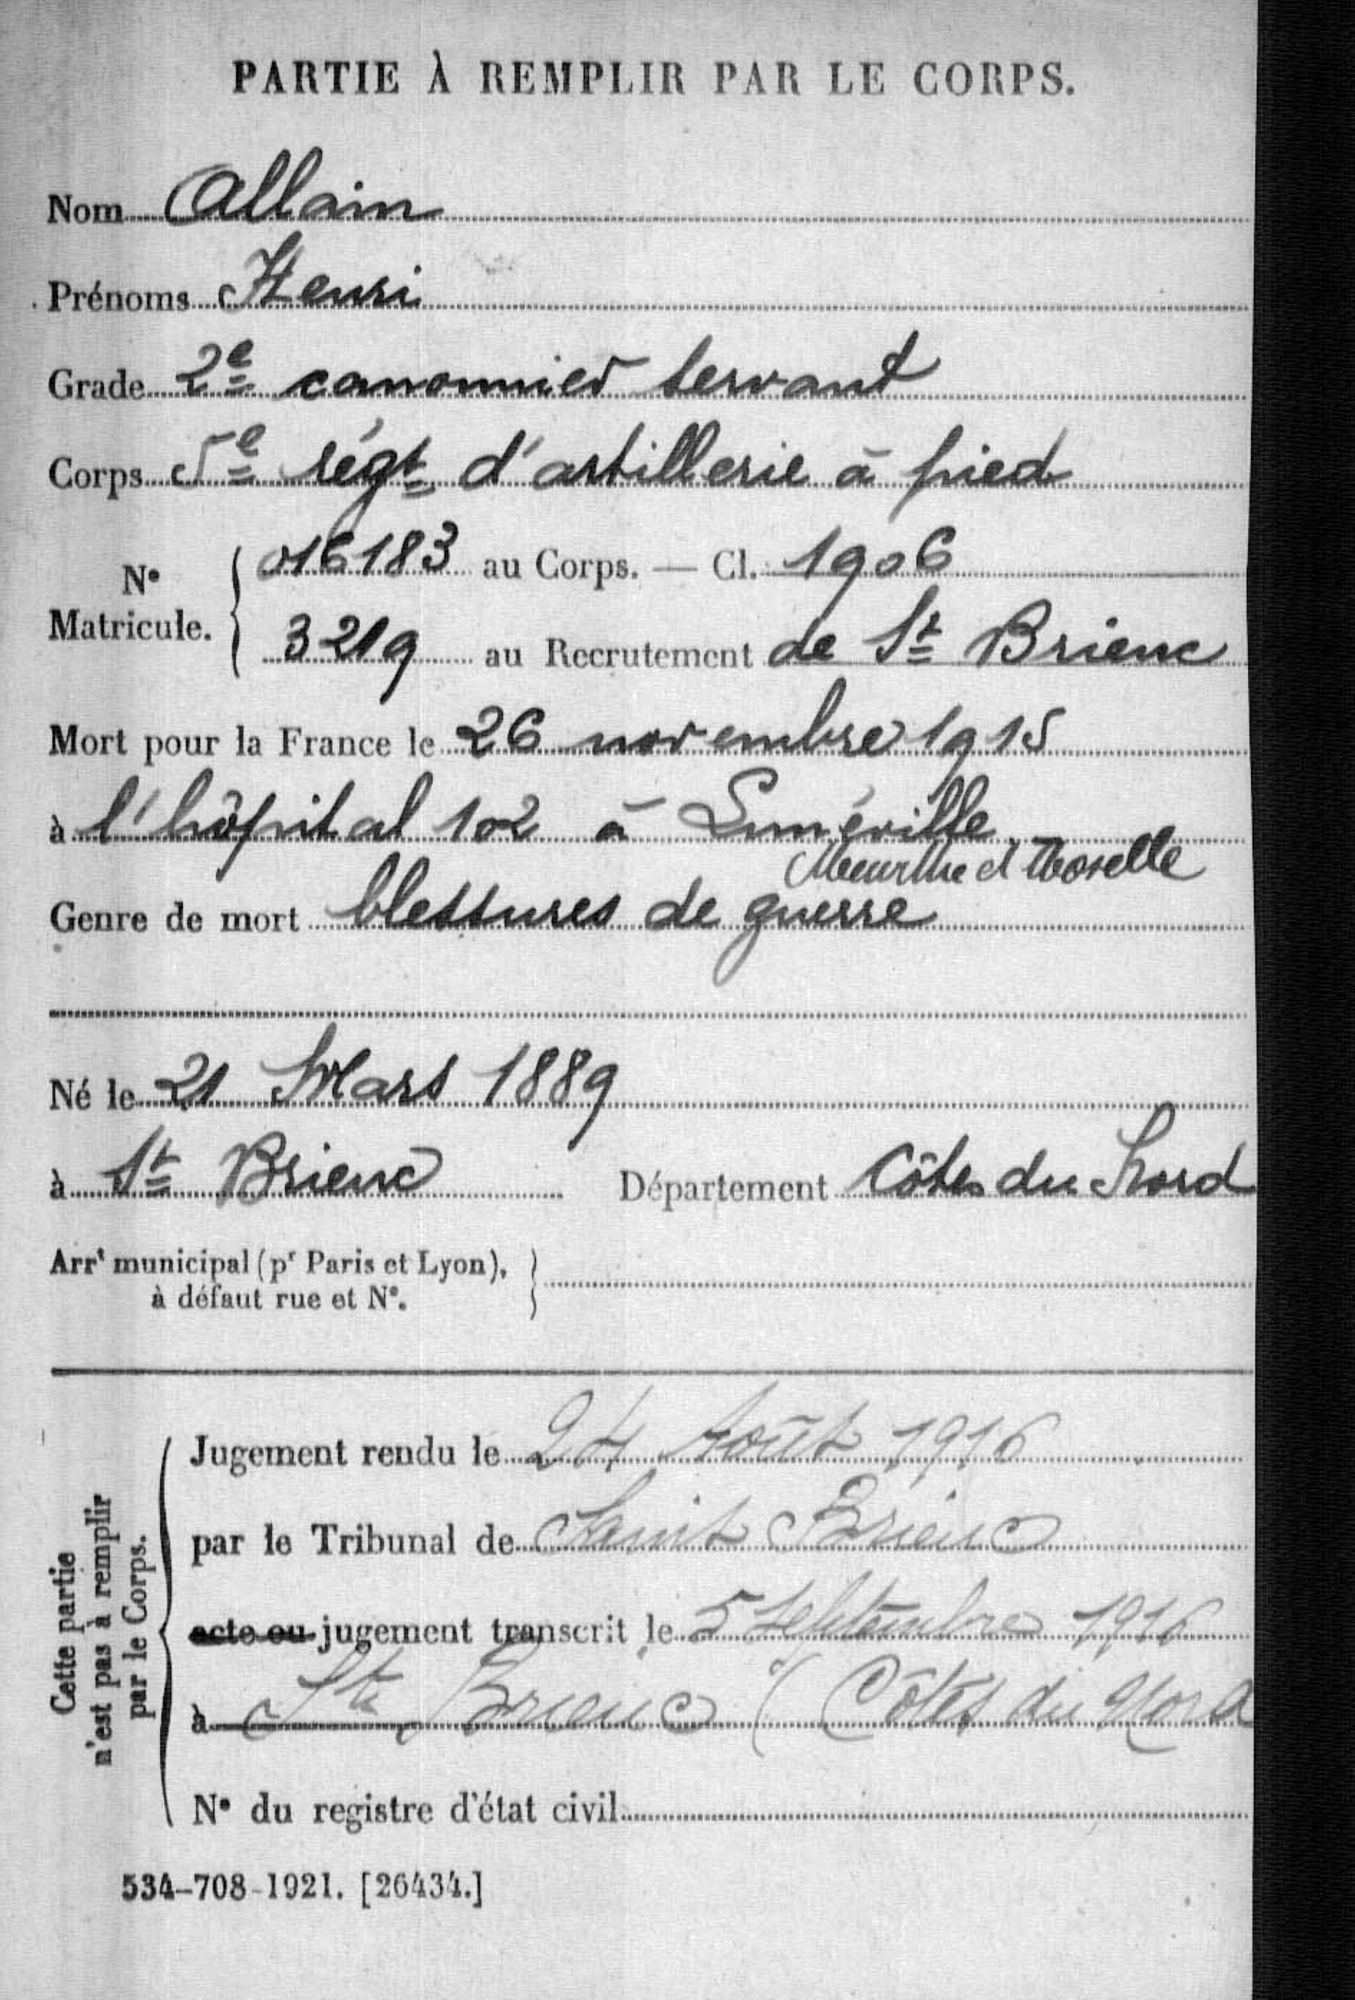 PARTIE À REMPLIR PAR LE CORPS.
Nom Allain
Prénoms Henri
Grade 2e canonnier servant
Corps 5e régt d'artillerie à pied
N° Matricule. { 016183 au Corps. — Cl. 1906
3219 au Recrutement de St Brieuc
Mort pour la France le 26 novembre 1915
à l'hôpital 102 à Lunéville
Meurthe et Moselle
Genre de mort blessures de guerre
Né le 21 Mars 1889
à St Brieuc Département Côtes du Nord
Arrt municipal (pr Paris et Lyon), }
à défaut rue et N°.
Cette partie
n'est pas à remplir
par le Corps.
Jugement rendu le 24 Août 1916
par le Tribunal de Saint Brieuc
acte ou jugement transcrit le 5 Septembre 1916
à St Brieuc (Côtes du Nord
N° du registre d'état civil
534-708-1921. [26434.]